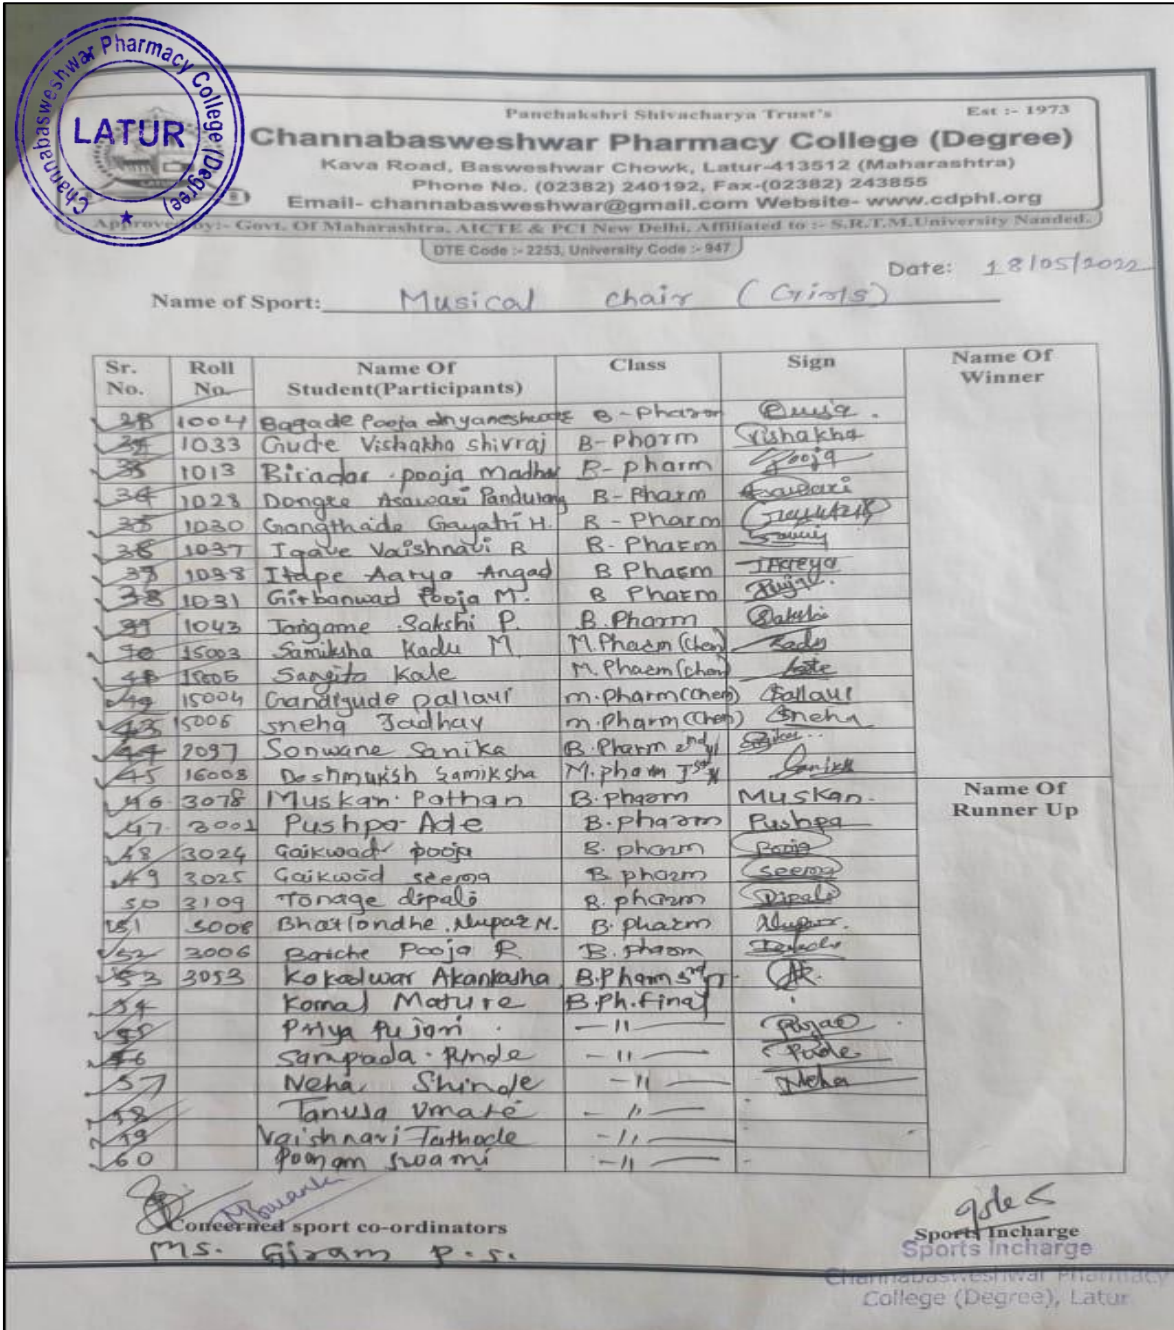 Channabasweshwar Pharmacy College (Degree)
LATUR
Panchakshri Shivacharya Trust's
Est :- 1973
Channabasweshwar Pharmacy College (Degree)
Kava Road, Basweshwar Chowk, Latur-413512 (Maharashtra)
Phone No. (02382) 240192, Fax-(02382) 243855
Email- channabasweshwar@gmail.com Website- www.cdphl.org
Approved by:- Govt. Of Maharashtra, AICTE & PCI New Delhi, Affiliated to :- S.R.T.M.University Nanded.
DTE Code :- 2253, University Code :- 947
Date: 18/05/2022
Name of Sport: Musical chair (Girls)
Sr. No. Roll No. Name Of Student(Participants) Class Sign Name Of Winner
1004 Bagade Pooja B-Pharm
1033 Gude Vishakha shivraj B-Pharm Vishakha
1013 Biradar pooja B-pharm Pooja
34 1028 Dongre Asawari Pandurang B-Pharm Asawari
35 1030 Gangthade Gayatri H. B-Pharm
36 1037 Igave Vaishnavi B B-Pharm
37 1038 Itape Aarya Angad B Pharm
38 1031 Girbanwad Pooja M. B Pharm
39 1043 Jangame Sakshi P. B.Pharm Sakshi
15003 Samiksha Kadu M. M.Pharm (Chem) Kadu
15005 Sangita Kale M.Pharm (chem) kale
15004 Gandigude pallavi m.pharm(chem) Pallavi
43 15006 sneha Jadhav m.pharm(Chem) Sneha
44 2097 Sonwane Sanika B.Pharm 2nd
45 16008 Deshmukh Samiksha M.pharm Ist
46 3078 Muskan Pathan B.pharm Muskan. Name Of Runner Up
47. 3001 Pushpa Ade B.pharm Pushpa
48 3024 Gaikwad pooja B. pharm Pooja
49 3025 Gaikwad seema B pharm seema
50 3109 Tonage dipali B. pharm Dipali
51 3008 Nupur N. B. pharm Nupur.
52 3006 Baiche Pooja R B. pharm
53 3053 Kokadwar Akanksha B.Pharm
54 Komal Mature B.Ph.final
55 Priya Pujari —"—
56 Sampada —"—
57 Neha Shinde —"— Neha
58 Tanuja Umate —"—
59 Vaishnavi Tathode —"—
60 Poonam swami —"—
Concerned sport co-ordinators
Ms. Giram P.S.
Sports Incharge
Sports Incharge
Channabasweshwar Pharmacy
College (Degree), Latur